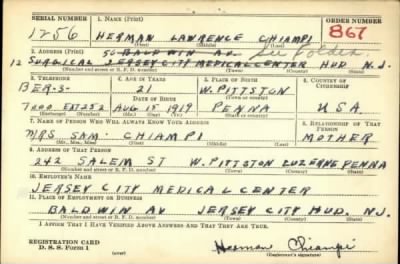 SERIAL NUMBER 1. NAME (Print) ORDER NUMBER
1256 HERMAN LAWRENCE CHIAMPI 867
(First) (Middle) (Last)
2. ADDRESS (Print) 50 BALDWIN AV. See Folder
12 SURGICAL JERSEY CITY MEDICAL CENTER HUD N.J.
(Number and street or R. F. D. number) (Town) (County) (State)
3. TELEPHONE 4. AGE IN YEARS 5. PLACE OF BIRTH 6. COUNTRY OF CITIZENSHIP
BER-5- 21 W. PITTSTON
DATE OF BIRTH (Town or county)
7000 EXT 252 AUG 15 1919 PENNA U.S.A.
(Exchange) (Number) (Mo.) (Day) (Yr.) (State or country)
7. NAME OF PERSON WHO WILL ALWAYS KNOW YOUR ADDRESS 8. RELATIONSHIP OF THAT PERSON
MRS SAM CHIAMPI MOTHER
(Mr., Mrs., Miss) (First) (Middle) (Last)
9. ADDRESS OF THAT PERSON
242 SALEM ST W. PITTSTON LUZERNE PENNA
(Number and street or R. F. D. number) (Town) (County) (State)
10. EMPLOYER'S NAME
JERSEY CITY MEDICAL CENTER
11. PLACE OF EMPLOYMENT OR BUSINESS
BALDWIN AV JERSEY CITY HUD. N.J.
(Number and street or R. F. D. number) (Town) (County) (State)
I AFFIRM THAT I HAVE VERIFIED ABOVE ANSWERS AND THAT THEY ARE TRUE.
REGISTRATION CARD
D. S. S. Form 1 Herman Chiampi
(Registrant's signature)